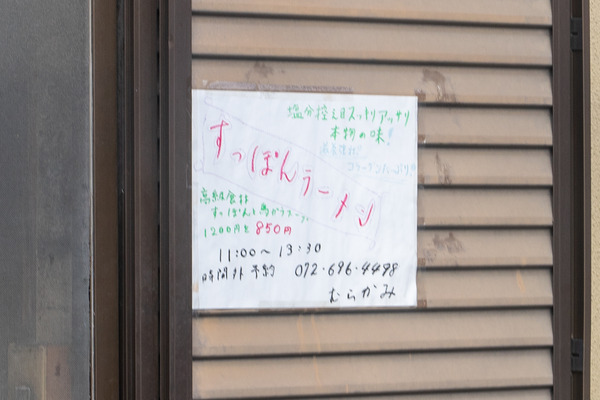 塩分控え目スッキリアッサリ
本物の味!!
コラーゲンたっぷり!!
すっぽんラーメン
高級食材
すっぽんと鳥がらスープ
1200円を850円
11:00～13:30
時間外予約 072・696・4498
むらかみ